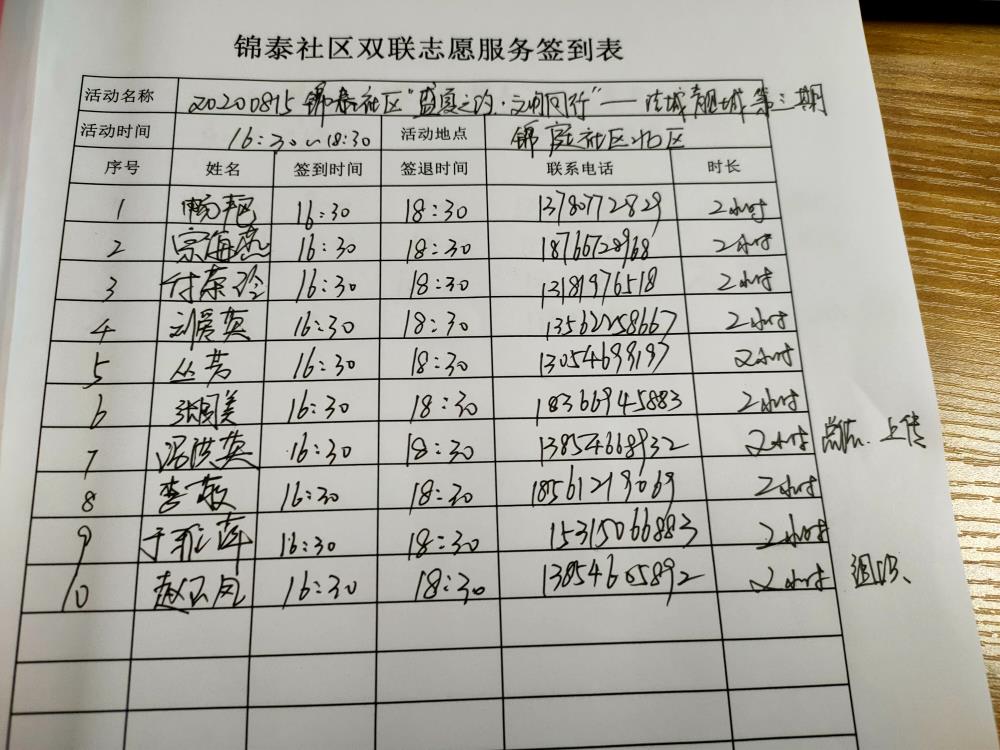 锦泰社区双联志愿服务签到表
活动名称 20200815 锦泰社区“盛夏之约·文明同行”——清城靓城第二期
活动时间 16:30~18:30 活动地点 锦庭社区北区
序号 姓名 签到时间 签退时间 联系电话 时长
1 16:30 18:30 13780772829 2小时
2 宗海燕 16:30 18:30 18766728968 2小时
3 付荣玲 16:30 18:30 13181976518 2小时
4 刘爱英 16:30 18:30 13562258667 2小时
5 丛芳 16:30 18:30 13054699197 2小时
6 张国美 16:30 18:30 18366945883 2小时
7 冯洪英 16:30 18:30 13854668932 2小时 总结、上传
8 李敏 16:30 18:30 18561219069 2小时
9 于 萍 16:30 18:30 15315066883 2小时
10 赵云凤 16:30 18:30 13854605892 2小时 组织、